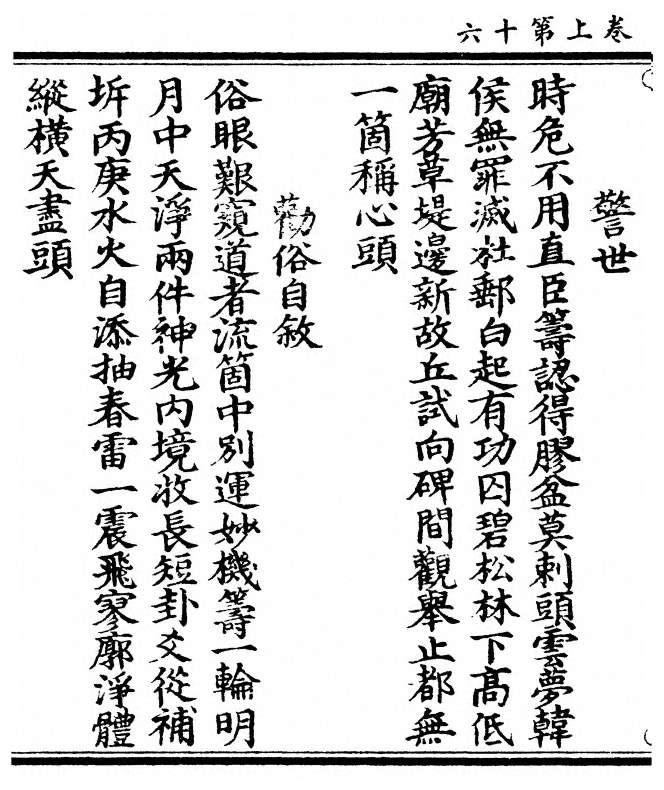 卷上第十六
警世
時危不用直臣籌認得膠盆莫刺頭雲夢韓
侯無罪滅杜郵白起有功囚碧松林下高低
廟芳草堤邊新故丘試向碑間觀舉止都無
一箇稱心頭
勸俗自敘
俗眼艱窺道者流箇中別運妙機籌一輪明
月中天淨兩件神光內境收長短卦爻從補
坼丙庚水火自添抽春雷一震飛寥廓淨體
縱橫天盡頭